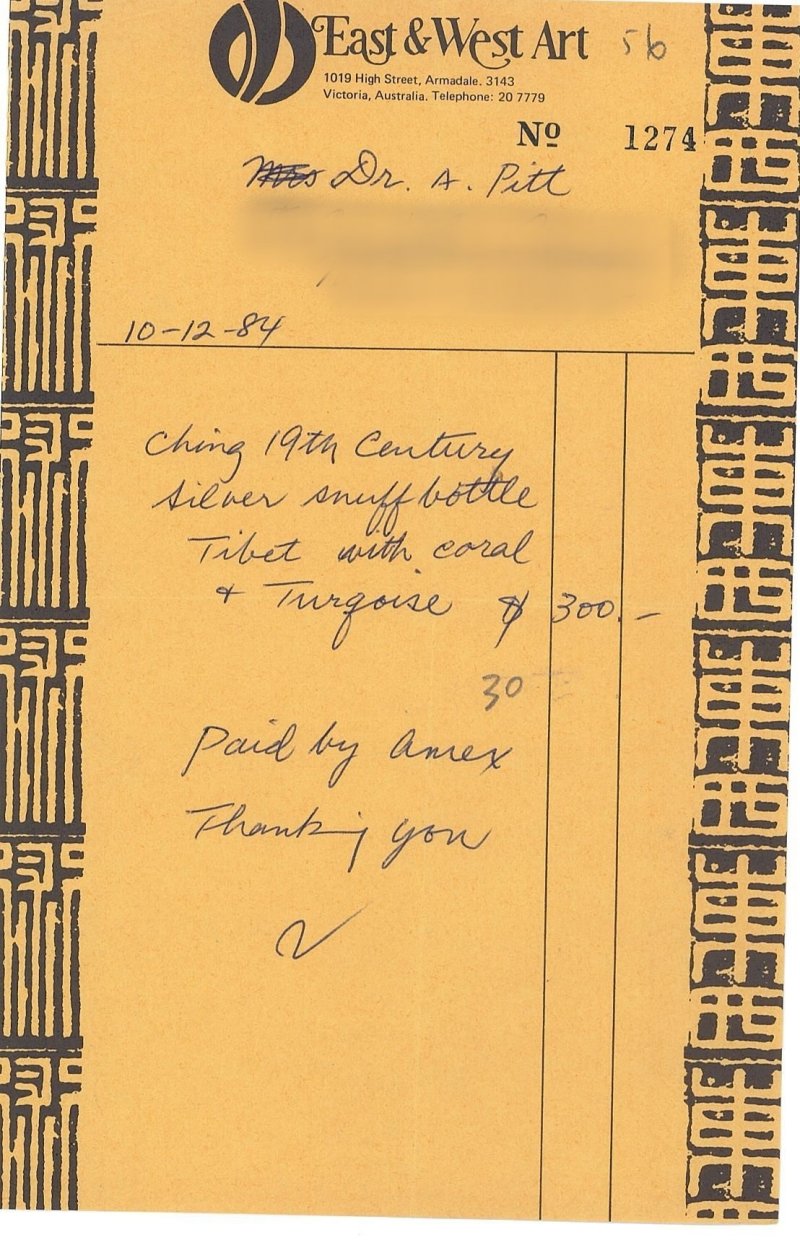 East & West Art 56
1019 High Street, Armadale. 3143
Victoria, Australia. Telephone: 20 7779
Nº 1274
Dr. A. Pitt
10-12-84
Ching 19th Century
silver snuff bottle
Tibet with coral
+ Turqoise $ 300.-
30
Paid by Amex
Thanking you